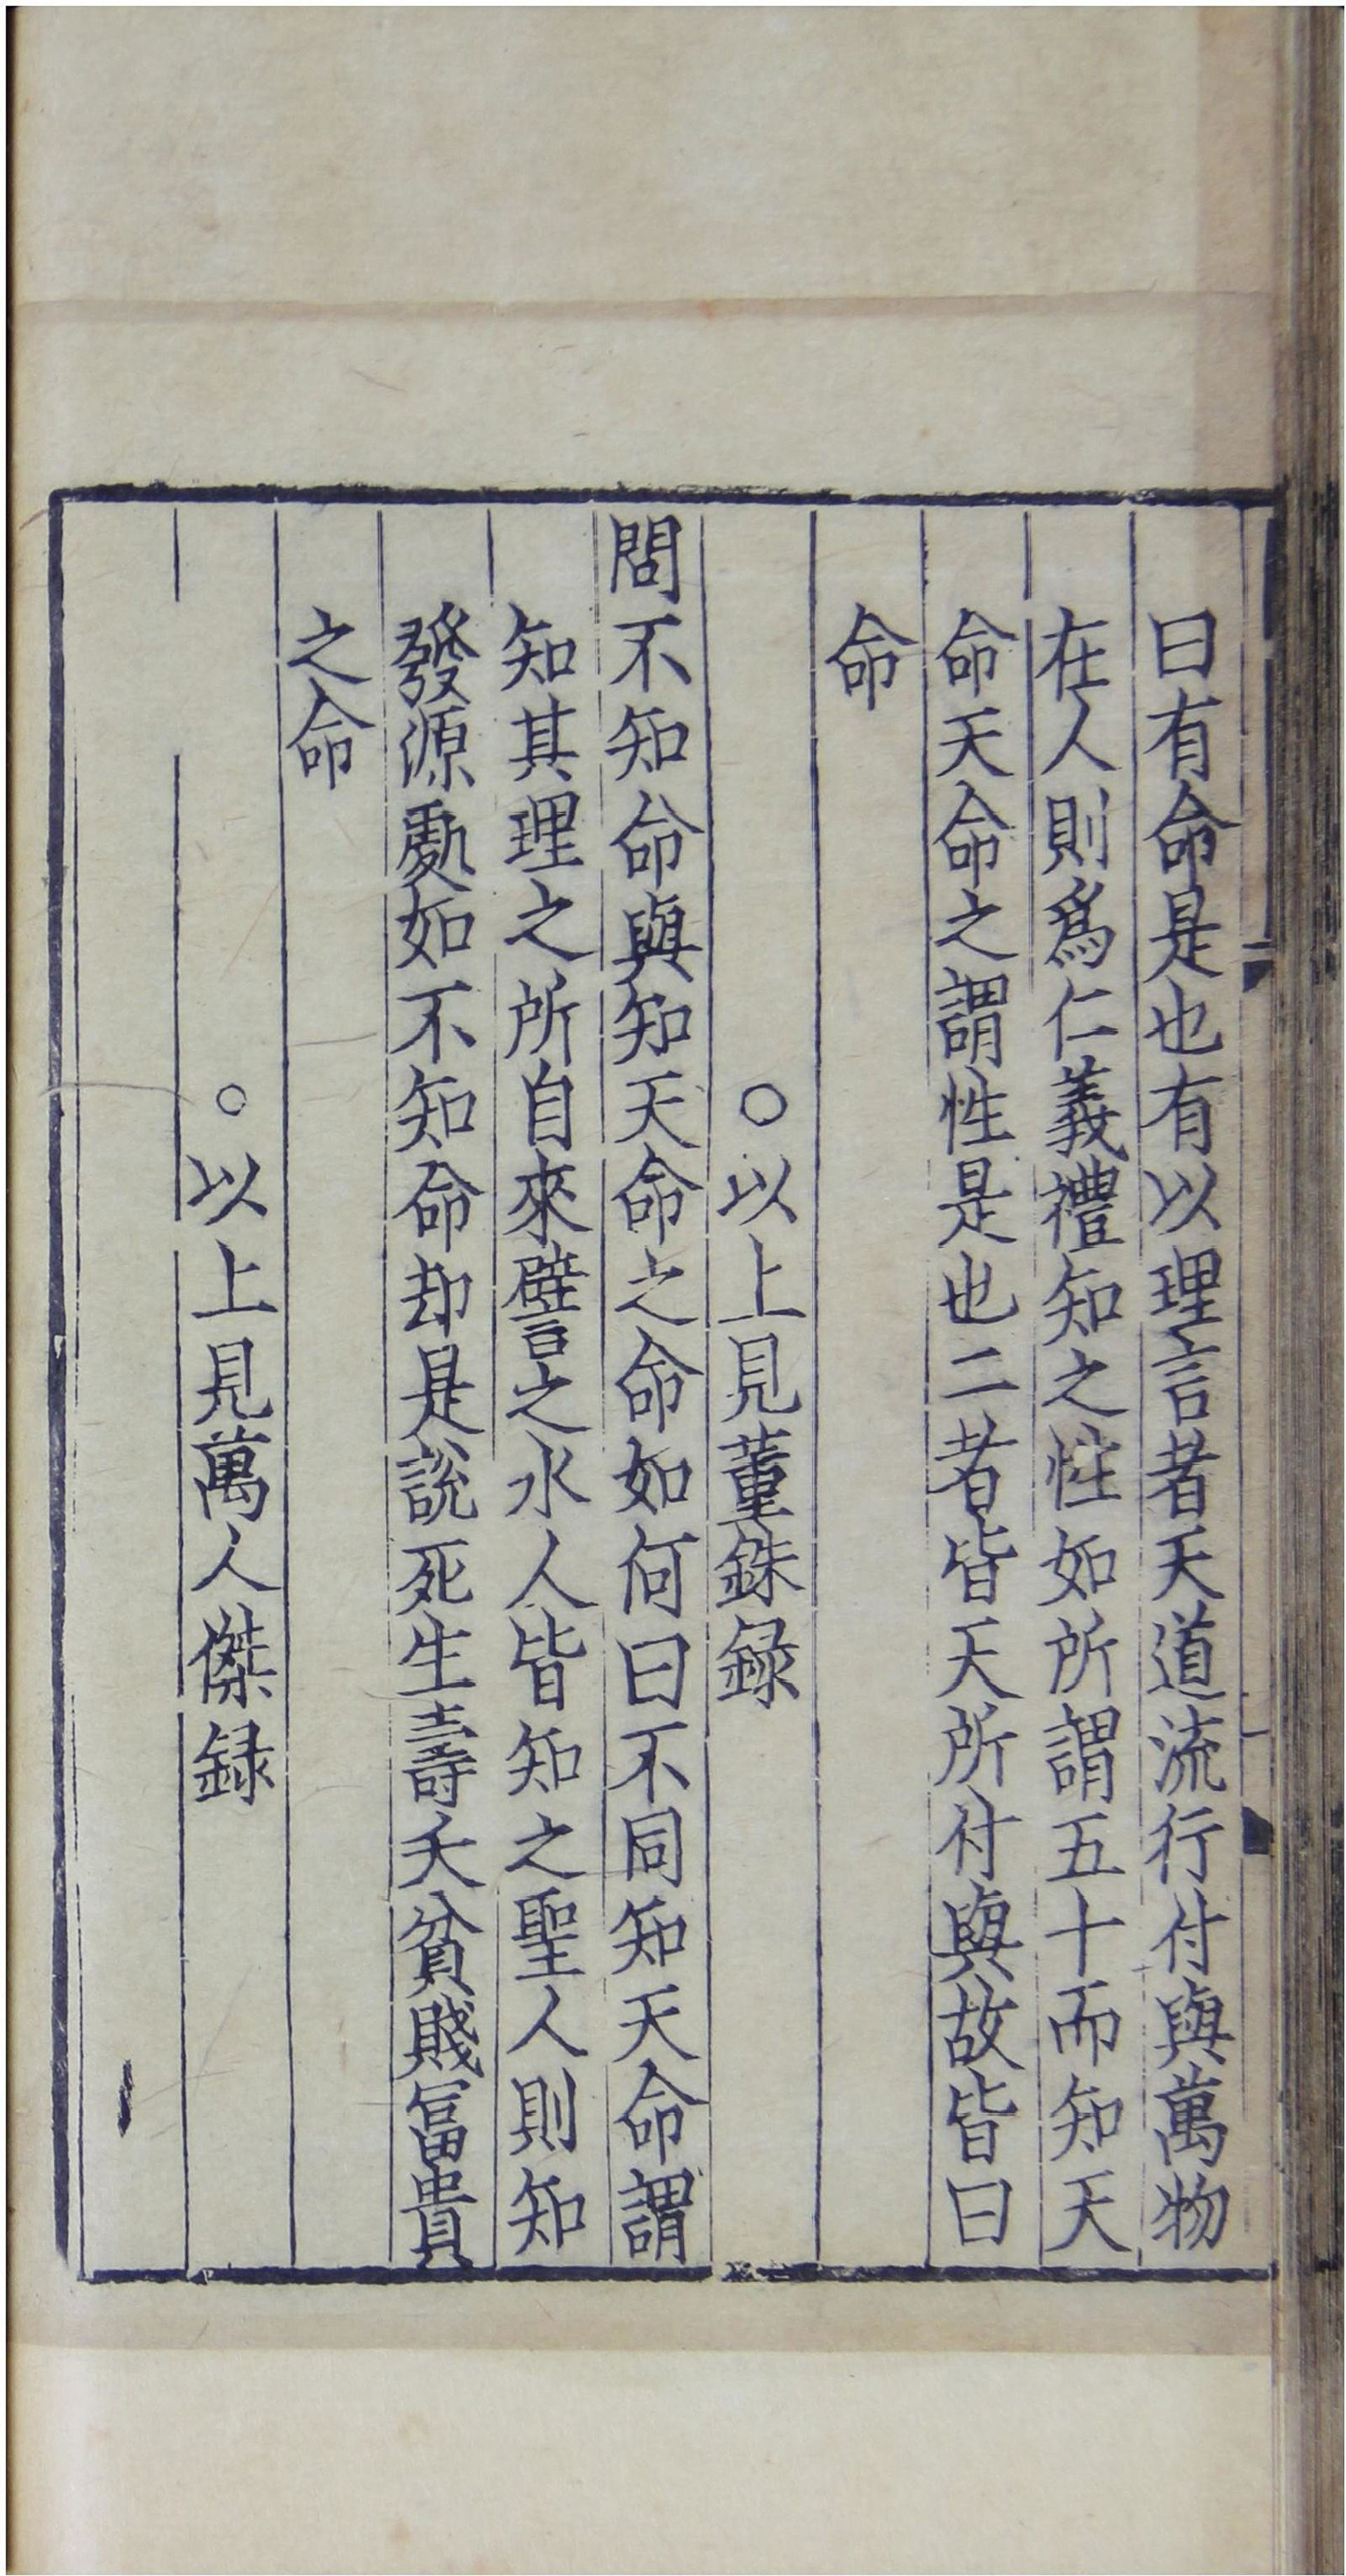 曰有命是也有以理言者天道流行付與萬物
在人則爲仁義禮知之性如所謂五十而知天
命天命之謂性是也二者皆天所付與故皆曰
命
○以上見董銖録
問不知命與知天命之命如何曰不同知天命謂
知其理之所自來譬之水人皆知之聖人則知
發源處如不知命却是説死生壽夭貧賤富貴
之命
○以上見萬人傑録